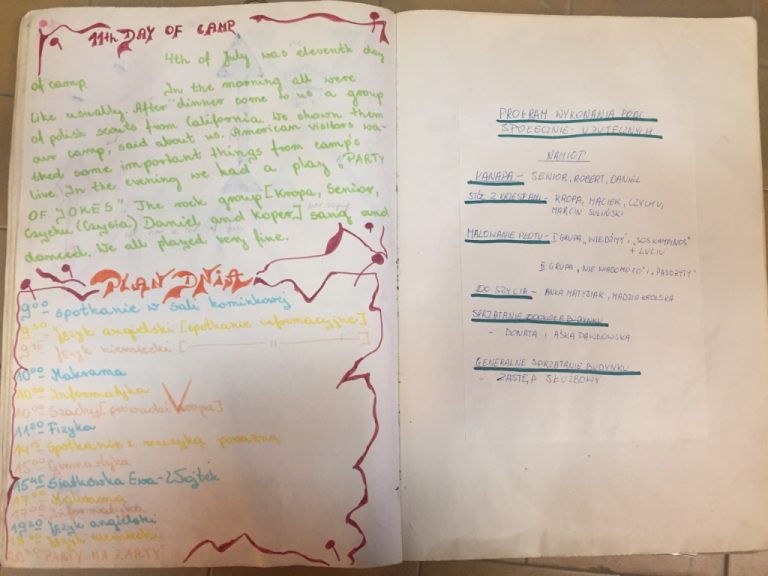 11th DAY OF CAMP
4th of July was eleventh day
of camp. In the morning all were
like usually. After dinner come to us a group
of polish scouts from California. We shown them
our camp, said about us. American visitors wa-
thed some important things from camp's
live. In the evening we had a play "PARTY
OF JOKES". The rock group [Kropa, Senior,
Czychu (Czysia) Daniel and Koper] sang and
danced. We all played very fine.
PLAN DNIA
9:00 spotkanie w sali kominkowej
język angielski [spotkanie informacyjne]
9:45 język niemiecki [ — " — ]
10:00 Makrama
10:00 Informatyka
10:00 Szachy [prowadzi Kropa]
11:00 Fizyka
Spotkanie z muzyką poważną
15:00 Gimnastyka
15:45 Siatkówka Ewa-Wojtek
17:00 Makrama
17:00 Informatyka
język angielski
język niemiecki
"PARTY NA ŻARTY"
PROGRAM WYKONANIA PRAC
SPOŁECZNIE - UŻYTECZNYCH
NAMIOT
KANAPA - SENIOR, ROBERT, DANIEL
Z KRZESŁAMI - KROPA, MACIEK, CZYCHU,
MARCIN SULIŃSKI
MALOWANIE PŁOTU - I GRUPA "WIEDŹMY", "SOS KAMPINOS"
+ LUCIU
II GRUPA "NIE WIADOMO CO" i "PASOŻYTY"
DO SZYCIA - ANKA MATYSIAK, MADZIA KROLSKA
SPRZĄTANIE DOOKOŁA BUDYNKU
- DONATA i AŚKA PAWŁOWSKA
GENERALNE SPRZĄTANIE BUDYNKU
- ZASTĘP SŁUŻBOWY